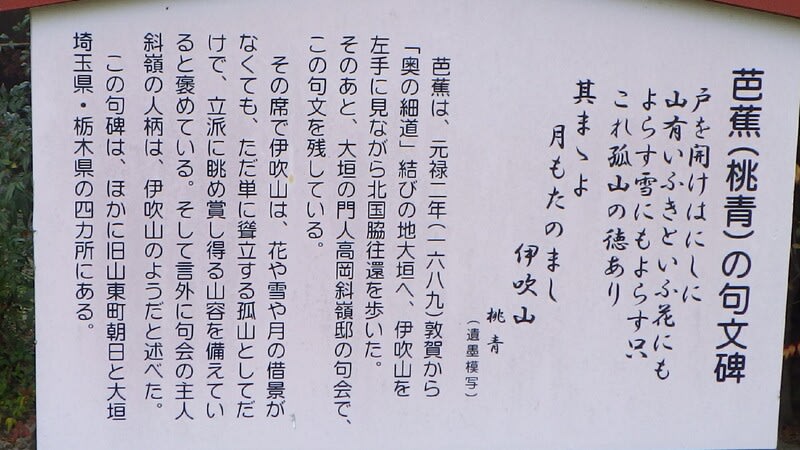 芭蕉(桃青)の句文碑
戸を開けはにしに
山有いふきといふ花にも
よらす雪にもよらす只
これ孤山の徳あり
其まゝよ
月もたのまし
伊吹山
桃青
(遺墨模写)
芭蕉は、元禄二年(一六八九)敦賀から
「奥の細道」結びの地大垣へ、伊吹山を
左手に見ながら北国脇往還を歩いた。
そのあと、大垣の門人高岡斜嶺邸の句会で、
この句文を残している。
その席で伊吹山は、花や雪や月の借景が
なくても、ただ単に聳立する孤山としてだ
けで、立派に眺め賞し得る山容を備えてい
ると褒めている。そして言外に句会の主人
斜嶺の人柄は、伊吹山のようだと述べた。
この句碑は、ほかに旧山東町朝日と大垣
埼玉県・栃木県の四カ所にある。